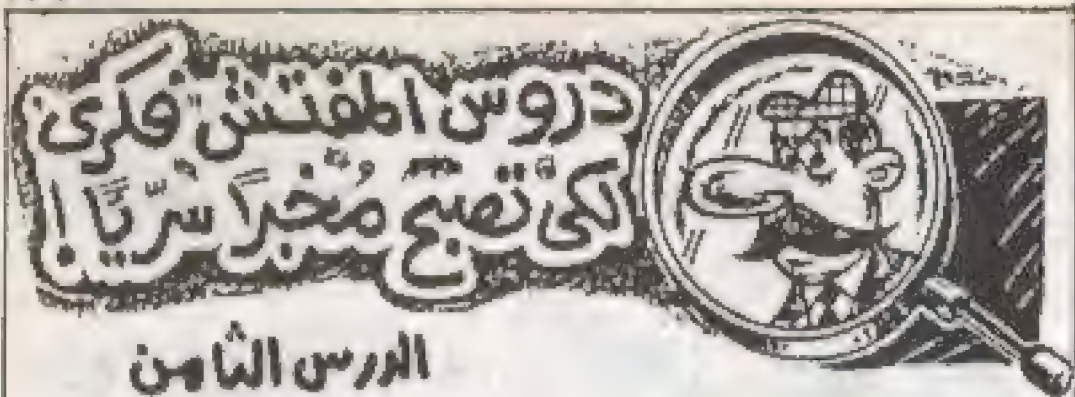 دروس المفتش فكرى
لكى تصبح مُخبرًا سرّيًا!
الدرس الثامن